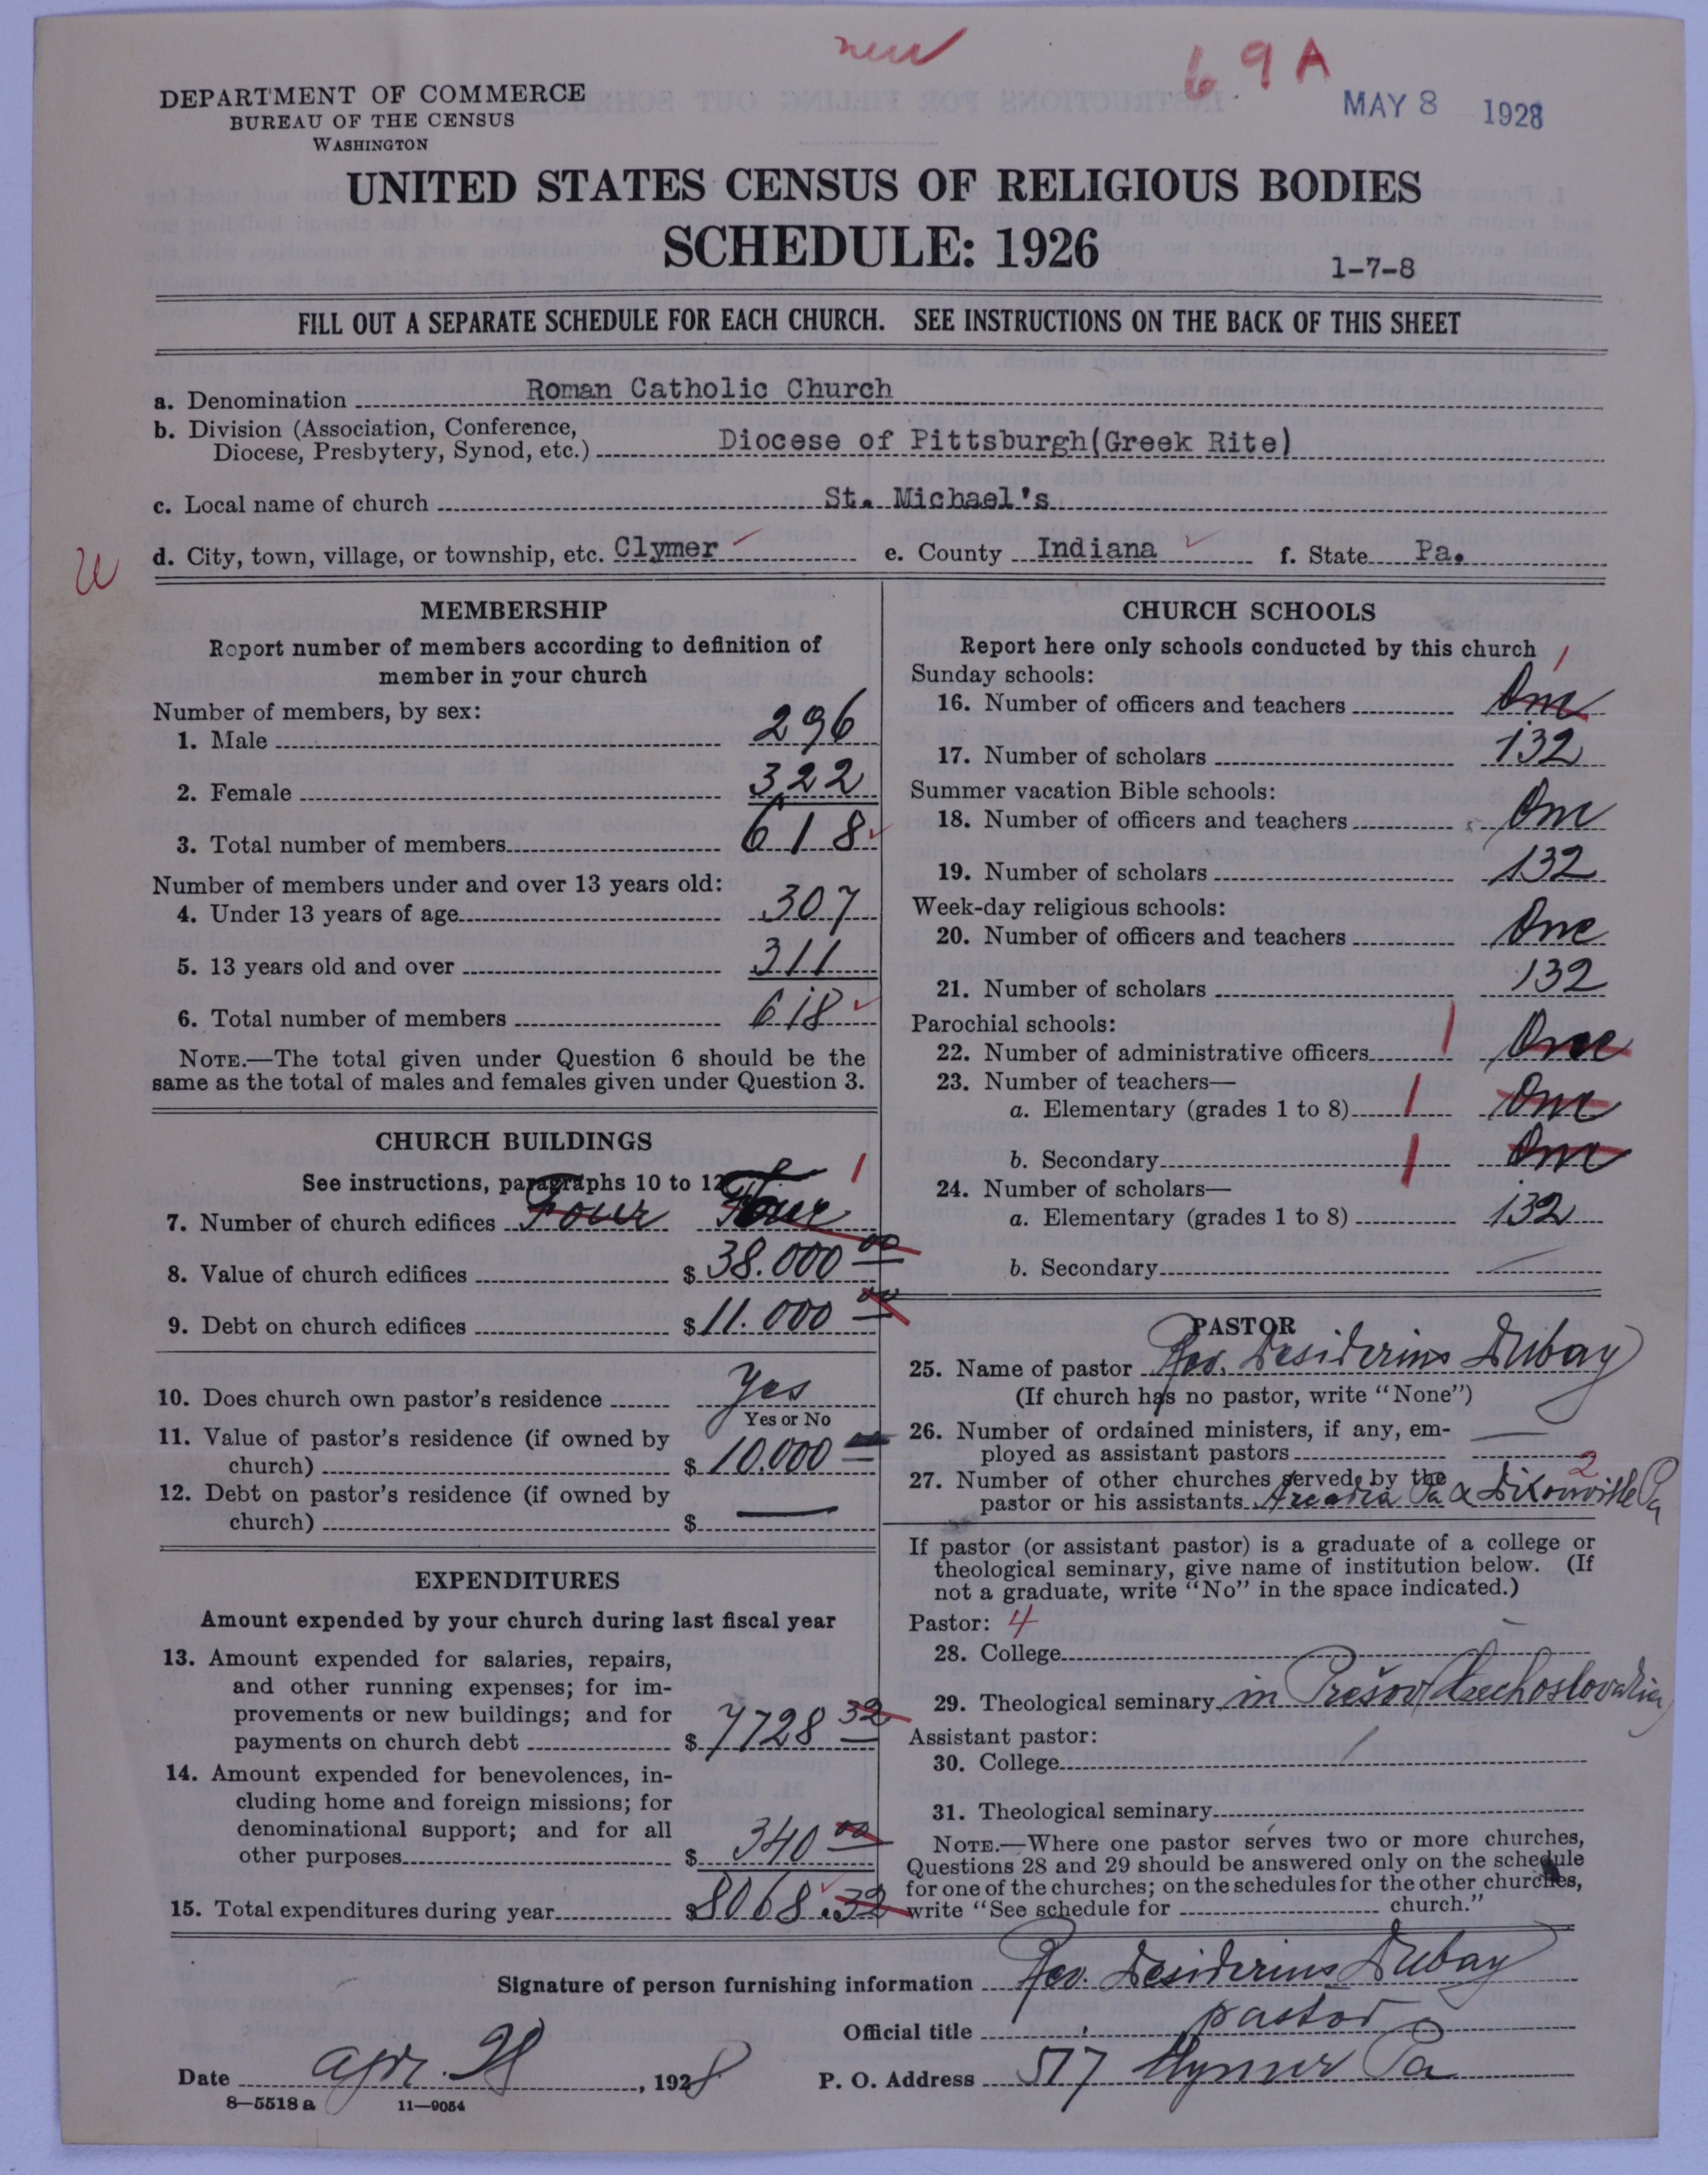 new
69A
MAY 8 1928
DEPARTMENT OF COMMERCE
BUREAU OF THE CENSUS
WASHINGTON
UNITED STATES CENSUS OF RELIGIOUS BODIES
SCHEDULE: 1926
1-7-8
FILL OUT A SEPARATE SCHEDULE FOR EACH CHURCH. SEE INSTRUCTIONS ON THE BACK OF THIS SHEET
a. Denomination Roman Catholic Church
b. Division (Association, Conference,
Diocese, Presbytery, Synod, etc.) Diocese of Pittsburgh(Greek Rite)
c. Local name of church St. Michael's
d. City, town, village, or township, etc. Clymer e. County Indiana f. State Pa.
MEMBERSHIP
Report number of members according to definition of
member in your church
Number of members, by sex:
1. Male 296
2. Female 322
3. Total number of members 618
Number of members under and over 13 years old:
4. Under 13 years of age 307
5. 13 years old and over 311
6. Total number of members 618
NOTE.—The total given under Question 6 should be the
same as the total of males and females given under Question 3.
CHURCH BUILDINGS
See instructions, paragraphs 10 to 12
7. Number of church edifices Four Four 1
8. Value of church edifices $ 38.000 00
9. Debt on church edifices $ 11.000 00
10. Does church own pastor's residence Yes
Yes or No
11. Value of pastor's residence (if owned by
church) $ 10.000
12. Debt on pastor's residence (if owned by
church) $ —
EXPENDITURES
Amount expended by your church during last fiscal year
13. Amount expended for salaries, repairs,
and other running expenses; for im-
provements or new buildings; and for
payments on church debt $ 7728 32
14. Amount expended for benevolences, in-
cluding home and foreign missions; for
denominational support; and for all
other purposes $ 340 00
15. Total expenditures during year $8068.32
CHURCH SCHOOLS
Report here only schools conducted by this church
Sunday schools: 1
16. Number of officers and teachers One
17. Number of scholars 132
Summer vacation Bible schools:
18. Number of officers and teachers One
19. Number of scholars 132
Week-day religious schools:
20. Number of officers and teachers One
21. Number of scholars 132
Parochial schools:
22. Number of administrative officers 1 One
23. Number of teachers—
a. Elementary (grades 1 to 8) 1 One
b. Secondary 1 One
24. Number of scholars—
a. Elementary (grades 1 to 8) 132
b. Secondary —
PASTOR
25. Name of pastor Rev. Desiderius Dubay
(If church has no pastor, write "None")
26. Number of ordained ministers, if any, em-
ployed as assistant pastors —
27. Number of other churches served by the 2
pastor or his assistants Arcadia Pa & Dixonville Pa
If pastor (or assistant pastor) is a graduate of a college or
theological seminary, give name of institution below. (If
not a graduate, write "No" in the space indicated.)
Pastor: 4
28. College
29. Theological seminary in Prešov Czechoslovakia
Assistant pastor:
30. College
31. Theological seminary
NOTE.—Where one pastor serves two or more churches,
Questions 28 and 29 should be answered only on the schedule
for one of the churches; on the schedules for the other churches,
write "See schedule for church."
Signature of person furnishing information Rev. Desiderius Dubay
Official title pastor
Date apr. 28, 1928 P. O. Address 577 Clymer Pa
8—5518 a 11—9054